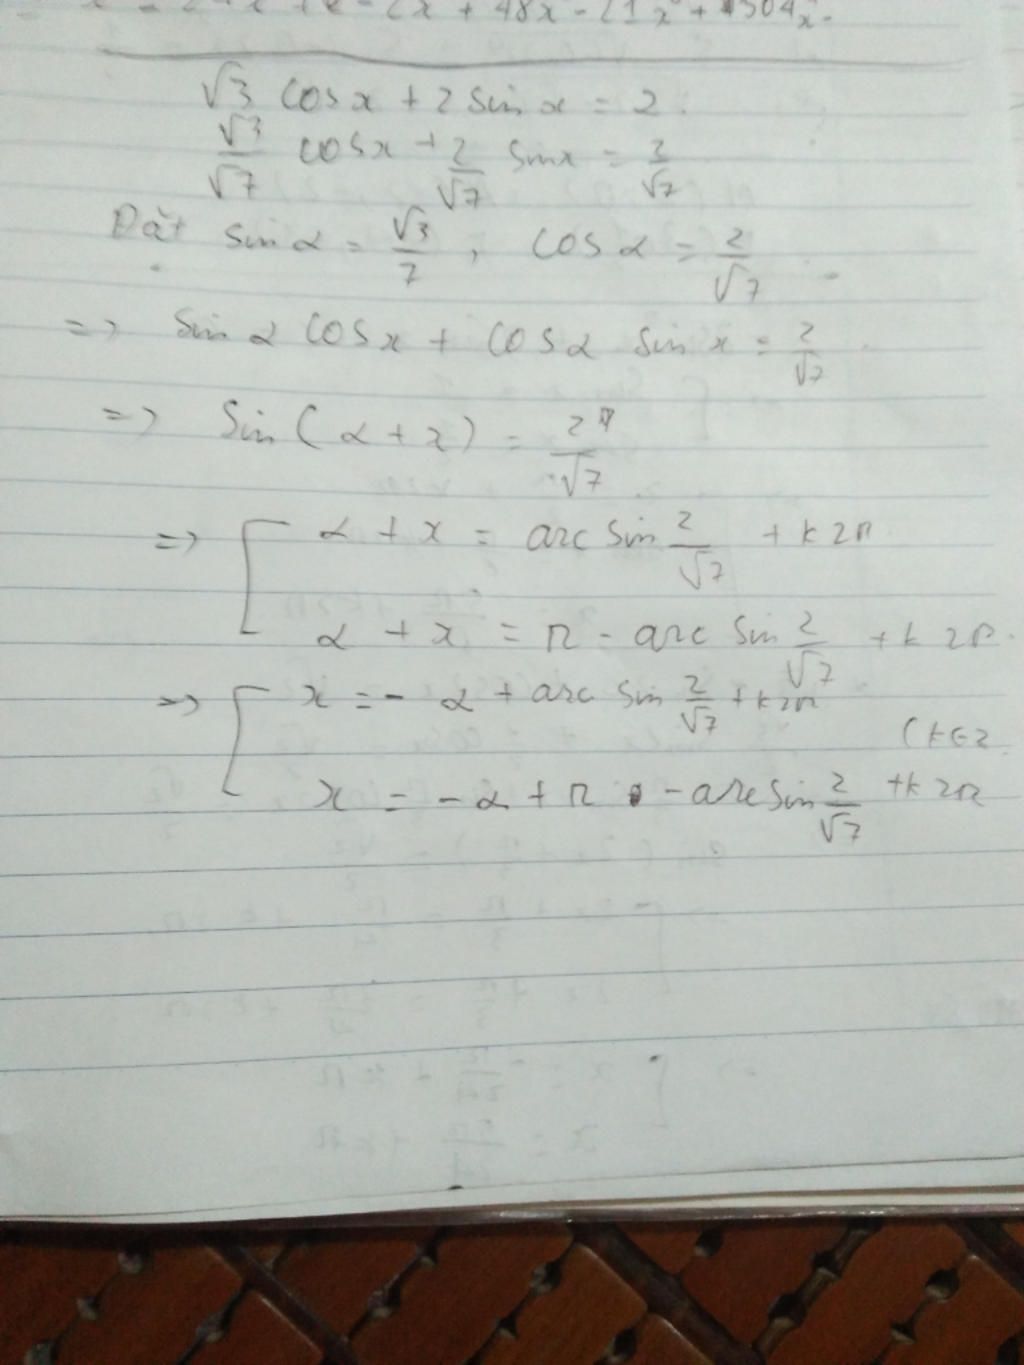 √3 cosx + 2 sin x = 2.
√3/√7 cosx + 2/√7 sinx = 2/√7
Đặt sin α = √3/7, cos α = 2/√7.
=> Sin α cosx + cosα sin x = 2/√7
=> Sin(α + x) = 2/√7
=> [ α + x = arc sin 2/√7 + k2π
α + x = π - arc sin 2/√7 + k2π.
=> [ x = - α + arc sin 2/√7 + k2π
(k∈Z
x = -α + π - arc sin 2/√7 + k2π